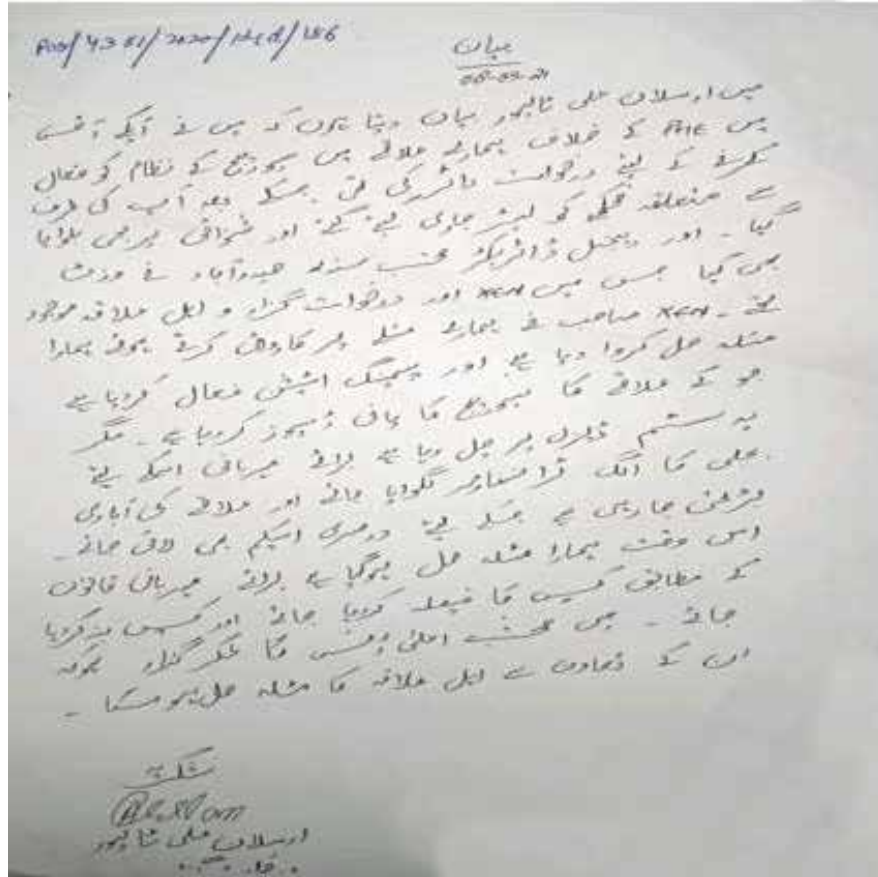 POS/4351/2020/Hyd/186
بیان
08-03-21
میں ارسلان علی ٹالپور بیان دیتا ہوں کہ میں نے آپکے آفس
میں PHE کے خلاف ہمارے علاقے میں سیوریج کے نظام کو فعال
کرنے کے لیئے درخواست دائر کی تھی۔ جسکے بعد آپ کی طرف
سے متعلقہ محکمے کو لیٹر جاری کیئے گئے اور شنوائی پر بھی بلوایا
گیا ۔ اور ریجنل ڈائریکٹر محتسب سندھ حیدرآباد نے وزٹ
بھی کیا جس میں XEN اور درخواست گزار و اہل علاقہ موجود
تھے ۔ XEN صاحب نے ہمارے مسئلے پر کاروائی کرتے ہوئے ہمارا
مسئلہ حل کروا دیا ہے اور پمپنگ اسٹیشن فعال کردیا ہے
جو کے علاقے کا سیوریج کا پانی ڈسپوز کررہا ہے ۔ مگر
یہ سسٹم جنرل پر چل رہا ہے برائے مہربانی اسکے لیئے
بجلی کا الگ ٹرانسفارمر لگوایا جائے اور علاقے کی آبادی
بڑھتی جارہی ہے جسکے لیئے دوسری اسکیم بھی لائی جائے ۔
اس وقت ہمارا مسئلہ حل ہوگیا ہے برائے مہربانی قانون
کے مطابق کیس کا فیصلہ کردیا جائے اور کیس بند کردیا
جائے ۔ میں محتسب اعلیٰ آفس کا شکر گزار ہوں کہ
ان کے تعاون سے اہل علاقہ کا مسئلہ حل ہوسکا ۔
شکریہ
ارسلان علی ٹالپور